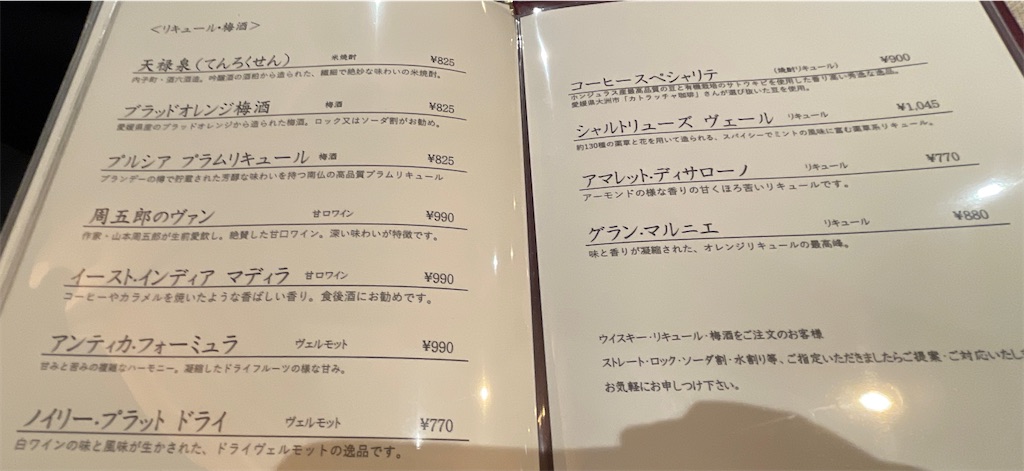 ＜リキュール・梅酒＞
天禄泉（てんろくせん） 米焼酎 ¥825
内子町・酒六酒造。吟醸酒の酒粕から造られた、繊細で絶妙な味わいの米焼酎。
ブラッドオレンジ梅酒 梅酒 ¥825
愛媛県産のブラッドオレンジから造られた梅酒。ロック又はソーダ割がお勧め。
プルシア プラムリキュール 梅酒 ¥825
ブランデーの樽で貯蔵された芳醇な味わいを持つ南仏の高品質プラムリキュール
周五郎のヴァン 甘口ワイン ¥990
作家・山本周五郎が生前愛飲し。絶賛した甘口ワイン。深い味わいが特徴です。
イースト・インディア マディラ 甘口ワイン ¥990
コーヒーやカラメルを焼いたような香ばしい香り。食後酒にお勧めです。
アンティカ・フォーミュラ ヴェルモット ¥990
甘みと苦みの複雑なハーモニー。凝縮したドライフルーツの様な甘み。
ノイリー・プラット ドライ ヴェルモット ¥770
白ワインの味と風味が生かされた、ドライヴェルモットの逸品です。
コーヒースペシャリテ （焼酎リキュール） ¥900
ホンジュラス産最高品質の豆と有機栽培のサトウキビを使用した香り高い秀逸な逸品。
愛媛県大洲市「カトラッチャ珈琲」さんが選び抜いた豆を使用。
シャルトリューズ ヴェール リキュール ¥1,045
約130種の薬草と花を用いて造られる、スパイシーでミントの風味に富む薬草系リキュール。
アマレット・ディサローノ リキュール ¥770
アーモンドの様な香りの甘くほろ苦いリキュールです。
グラン・マルニエ リキュール ¥880
味と香りが凝縮された、オレンジリキュールの最高峰。
ウイスキー・リキュール・梅酒をご注文のお客様
ストレート・ロック・ソーダ割・水割り等、ご指定いただきましたらご提案・ご対応いたし
お気軽にお申しつけ下さい。